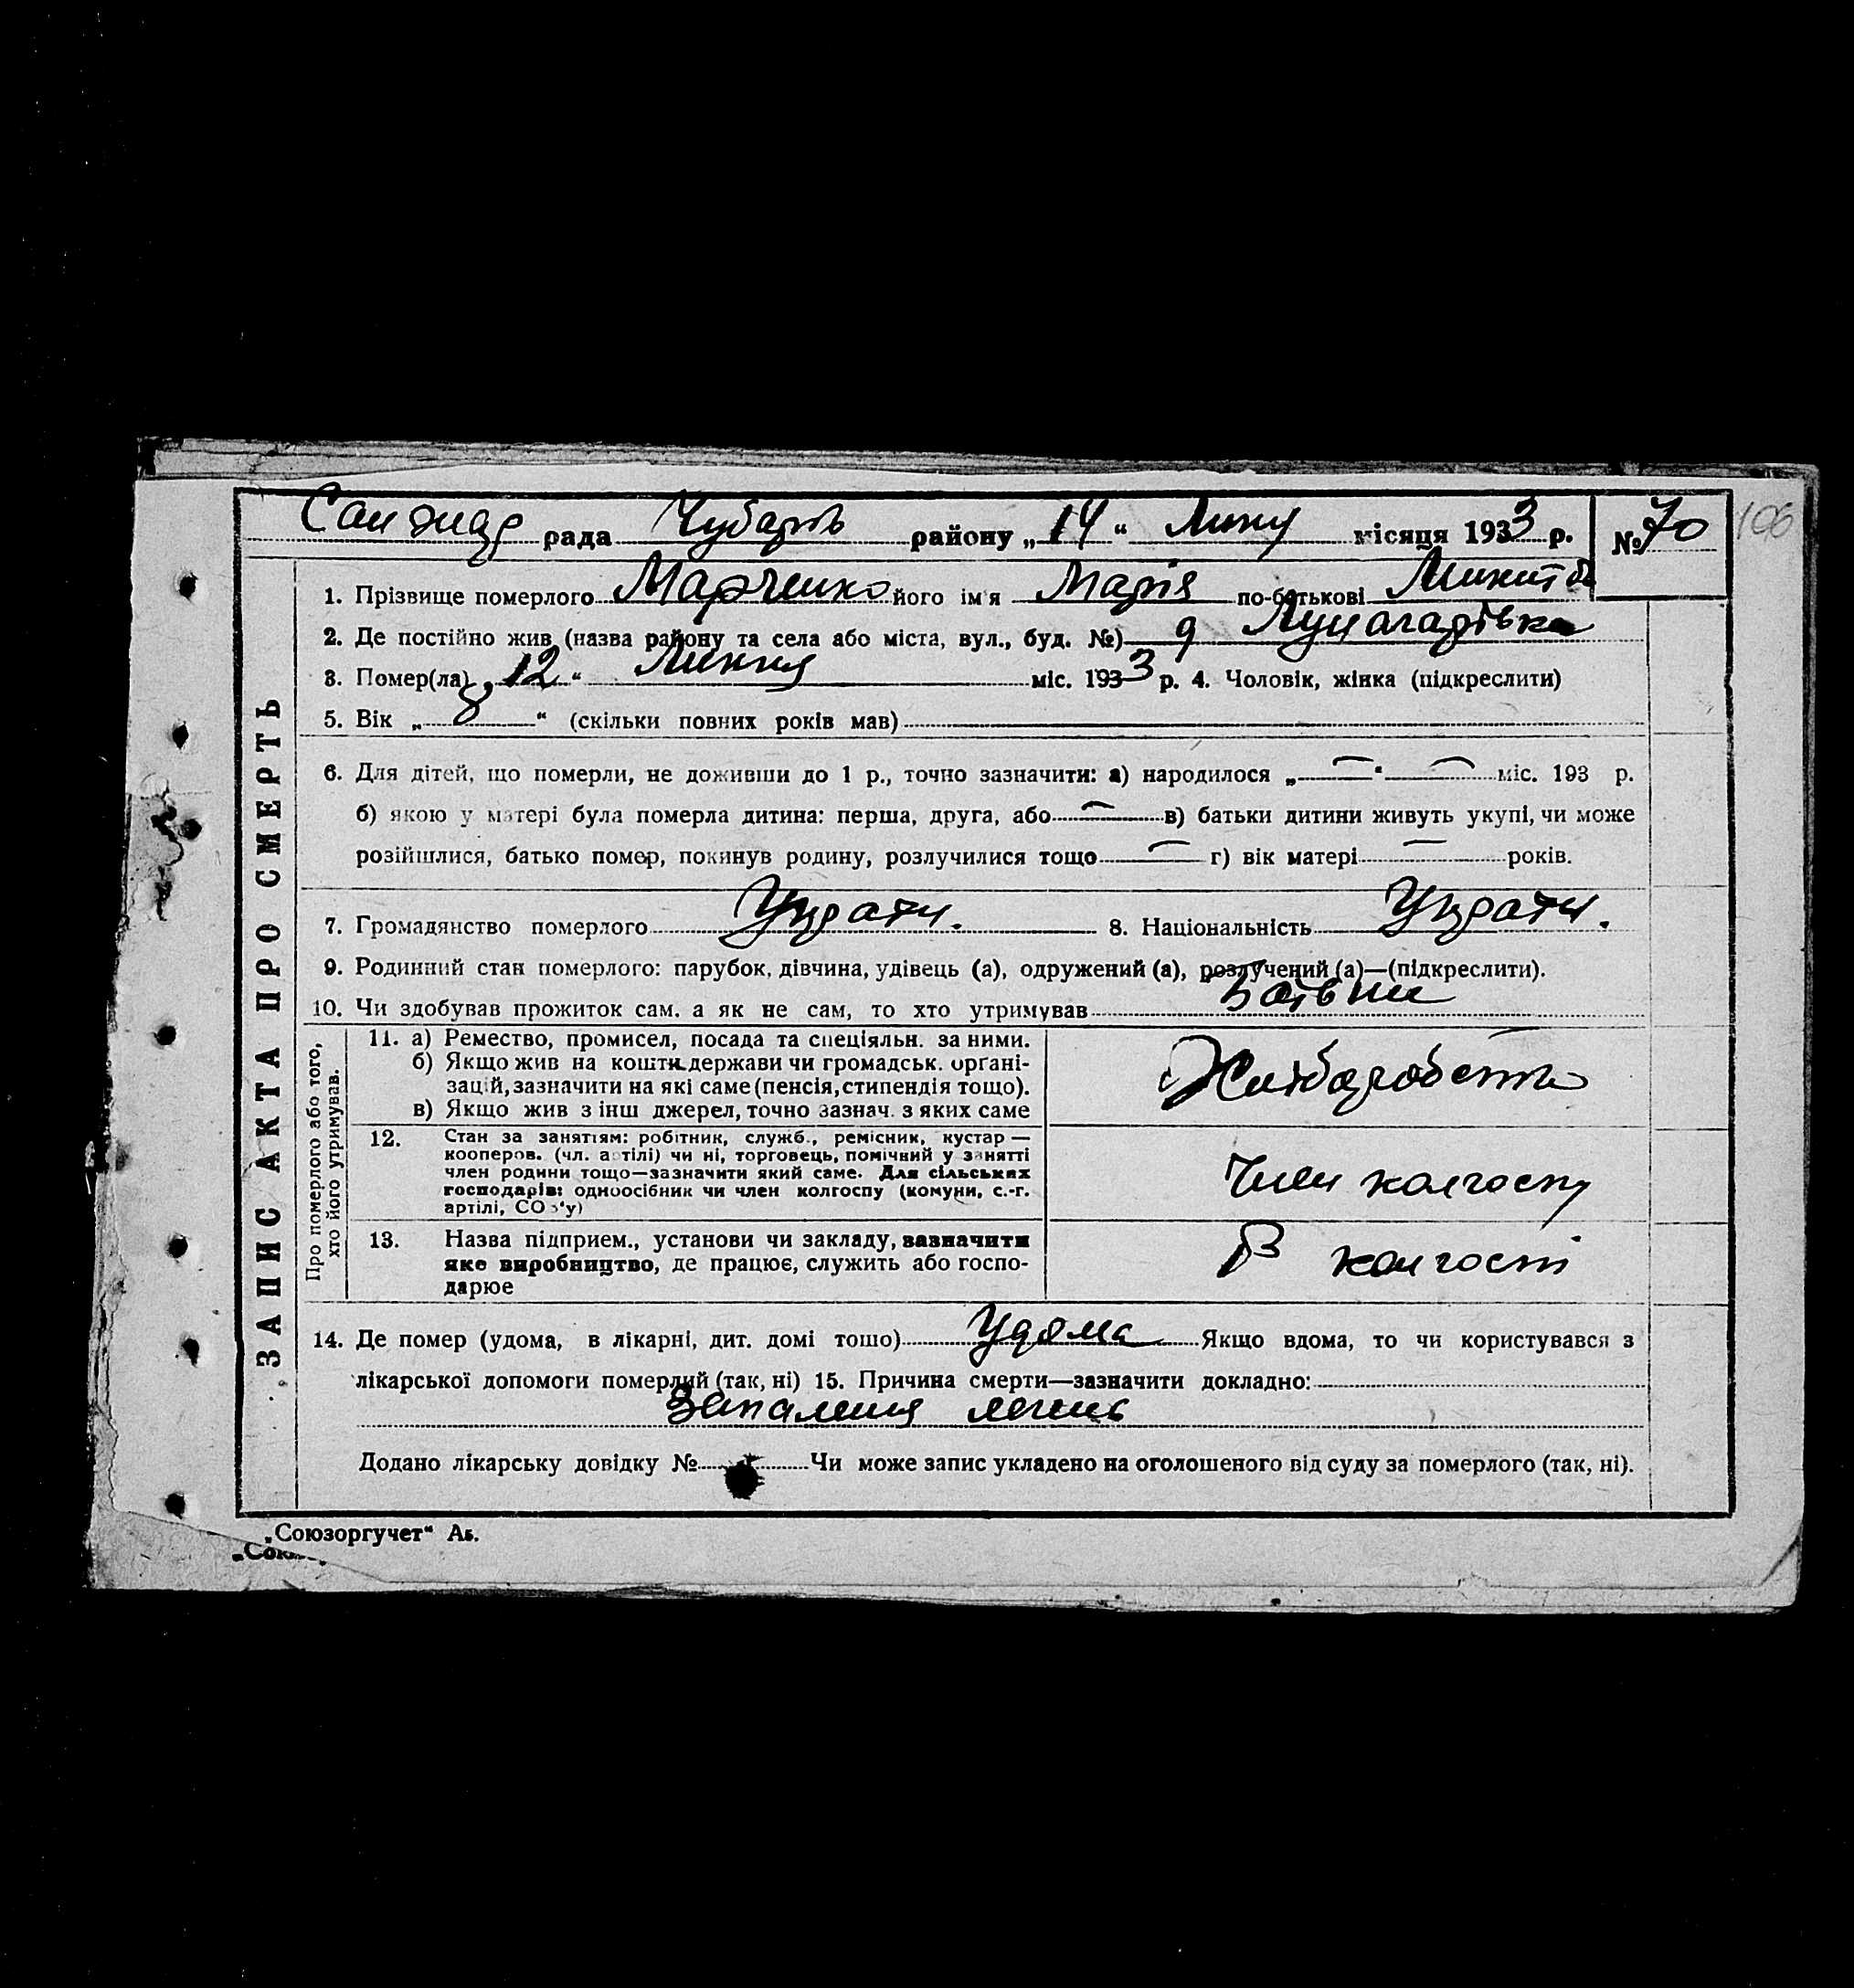 Санжар рада Чубарів району „14“ Липн місяця 1933 р. № 70
106
ЗАПИС АКТА ПРО СМЕРТЬ
1. Прізвище померлого Марченко його ім'я Марія по-батькові Микитів
2. Де постійно жив (назва району та села або міста, вул., буд. №)
3. Помер(ла) „12“ Липня міс. 1933 р. 4. Чоловік, жінка (підкреслити)
5. Вік „8“ (скільки повних років мав)
6. Для дітей, що померли, не доживши до 1 р., точно зазначити: а) народилося „—“ — міс. 193 р.
б) якою у матері була померла дитина: перша, друга, або — в) батьки дитини живуть укупі, чи може
розійшлися, батько помер, покинув родину, розлучилися тощо — г) вік матері — років.
7. Громадянство померлого 8. Національність
9. Родинний стан померлого: парубок, дівчина, удівець (а), одружений (а), розлучений (а)—(підкреслити).
10. Чи здобував прожиток сам, а як не сам, то хто утримував
Про померлого або того,
хто його утримував.
11. а) Ремество, промисел, посада та спеціяльн. за ними.
б) Якщо жив на кошти держави чи громадськ. органі-
зацій, зазначити на які саме (пенсія, стипендія тощо).
в) Якщо жив з інш джерел, точно зазнач. з яких саме
Хлібаробство
12. Стан за заняттям: робітник, служб., ремісник, кустар —
кооперов. (чл. артілі) чи ні, торговець, помічний у занятті
член родини тощо—зазначити який саме. Для сільських
господарів: одноосібник чи член колгоспу (комуни, с.-г.
артілі, СОЗ'у)
Член колгоспу
13. Назва підприєм., установи чи закладу, зазначити
яке виробництво, де працює, служить або госпо-
дарює
В колгоспі
14. Де помер (удома, в лікарні, дит. домі тощо) Удома Якщо вдома, то чи користувався з
лікарської допомоги померлий (так, ні) 15. Причина смерти—зазначити докладно:
Запалення легень
Додано лікарську довідку № Чи може запис укладено на оголошеного від суду за померлого (так, ні).
„Союзоргучет“ Аб.